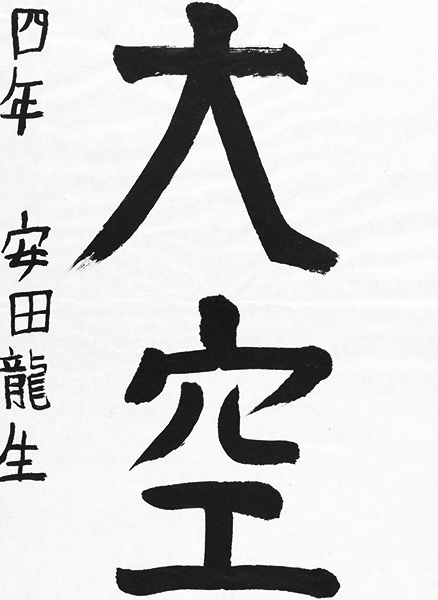 大空
四年 安田龍生